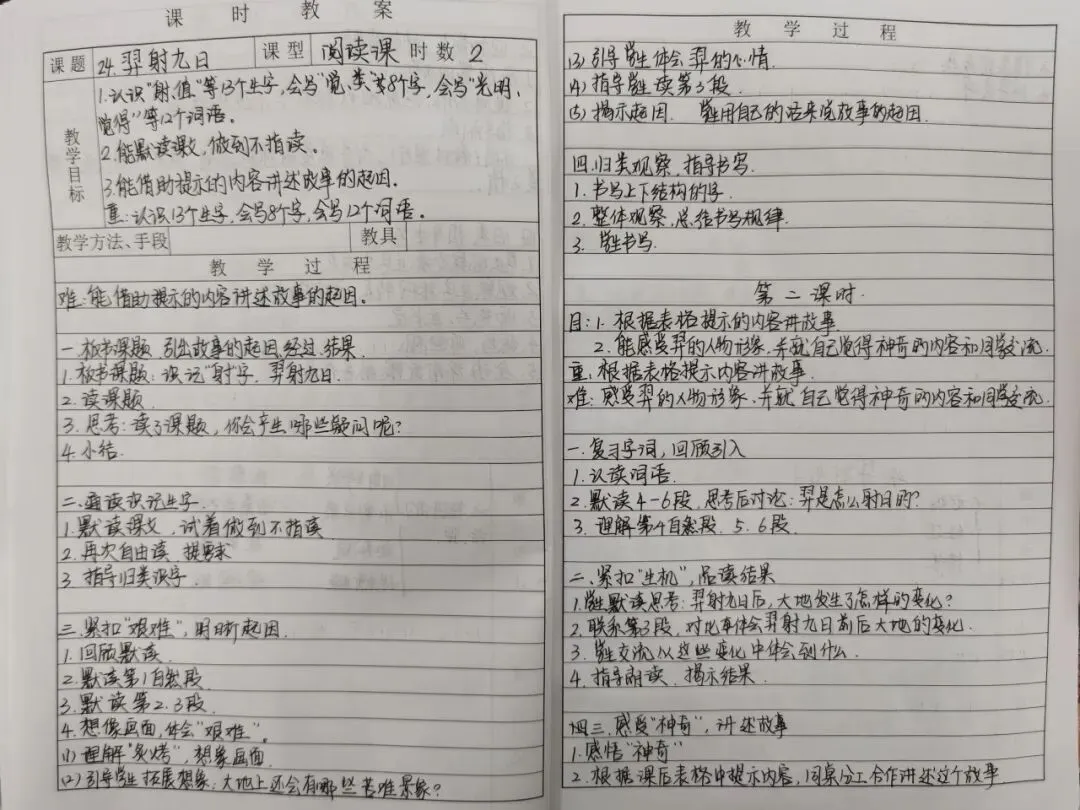 课时教案
课题 24.羿射九日 课型 阅读课 时数 2
教学目标
1.认识"射、值"等13个生字,会写"觉、类"等8个字,会写"光明、
觉得"等12个词语。
2.能默读课文,做到不指读。
3.能借助提示的内容讲述故事的起因。
重:认识13个生字,会写8个字,会写12个词语。
教学方法、手段 教具
教学过程
难:能借助提示的内容讲述故事的起因。
一.板书课题 引出故事的起因、经过、结果
1.板书课题:识记"射"字. 羿射九日.
2.读课题.
3.思考:读了课题,你会产生哪些疑问呢?
4.小结.
二.通读识记生字.
1.默读课文,试着做到不指读
2.再次自由读、提要求
3.指导归类识字.
三.紧扣"艰难",明晰起因.
1.回顾默读.
2.默读第1自然段
3.默读第2.3段.
4.想像画面,体会"艰难"。
(1)理解"炙烤",想象画面.
(2)引导学生拓展想象:大地上还会有哪些苦难景象?
教学过程
(3)引导学生体会羿的心情.
(4)指导学生读第3段.
(5)揭示起因. 学生用自己的话来说故事的起因.
四.归类观察,指导书写.
1.书写上下结构的字.
2.整体观察,总结书写规律.
3.学生书写.
第二课时.
目:1.根据表格提示的内容讲故事.
2.能感受羿的人物形象,并就自己觉得神奇的内容和同学交流.
重:根据表格提示内容讲故事.
难:感受羿的人物形象.并就自己觉得神奇的内容和同学交流.
一.复习字词,回顾引入
1.认读词语.
2.默读4-6段,思考后讨论:羿是怎么射日的?
3.理解第4自然段、5、6段.
二、紧扣"生机",品读结果
1.学生默读思考:羿射九日后,大地发生了怎样的变化?
2.联系第3段,对比体会羿射九日前后大地的变化.
3.学生交流从这些变化中体会到什么.
4.指导朗读、揭示结果.
三.感受"神奇",讲述故事
1.感悟"神奇"
2.根据课后表格中提示内容,同桌分工合作讲述这个故事